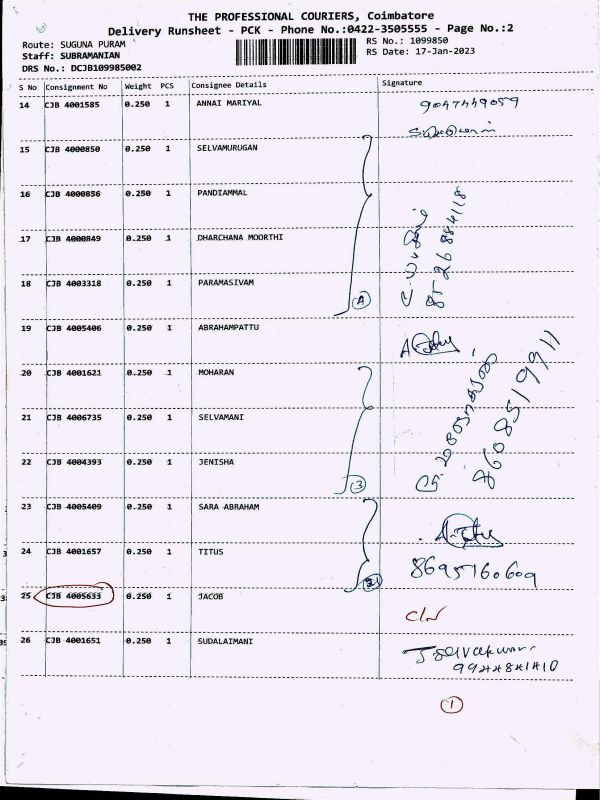 THE PROFESSIONAL COURIERS, Coimbatore
Delivery Runsheet - PCK - Phone No.:0422-3505555 - Page No.:2
Route: SUGUNA PURAM
RS No.: 1099850
Staff: SUBRAMANIAN
RS Date: 17-Jan-2023
DRS No.: DCJB109985002
S No Consignment No Weight PCS Consignee Details Signature
14 CJB 4001585 0.250 1 ANNAI MARIYAL
15 CJB 4000850 0.250 1 SELVAMURUGAN
16 CJB 4000856 0.250 1 PANDIAMMAL
17 CJB 4000849 0.250 1 DHARCHANA MOORTHI
18 CJB 4003318 0.250 1 PARAMASIVAM 4 8526884118
19 CJB 4005406 0.250 1 ABRAHAMPATTU
20 CJB 4001621 0.250 1 MOHARAN
21 CJB 4006735 0.250 1 SELVAMANI
22 CJB 4004393 0.250 1 JENISHA 3 8608519911
23 CJB 4005409 0.250 1 SARA ABRAHAM
24 CJB 4001657 0.250 1 TITUS 2 8695760609
25 CJB 4005633 0.250 1 JACOB
26 CJB 4001651 0.250 1 SUDALAIMANI
9944841410
1